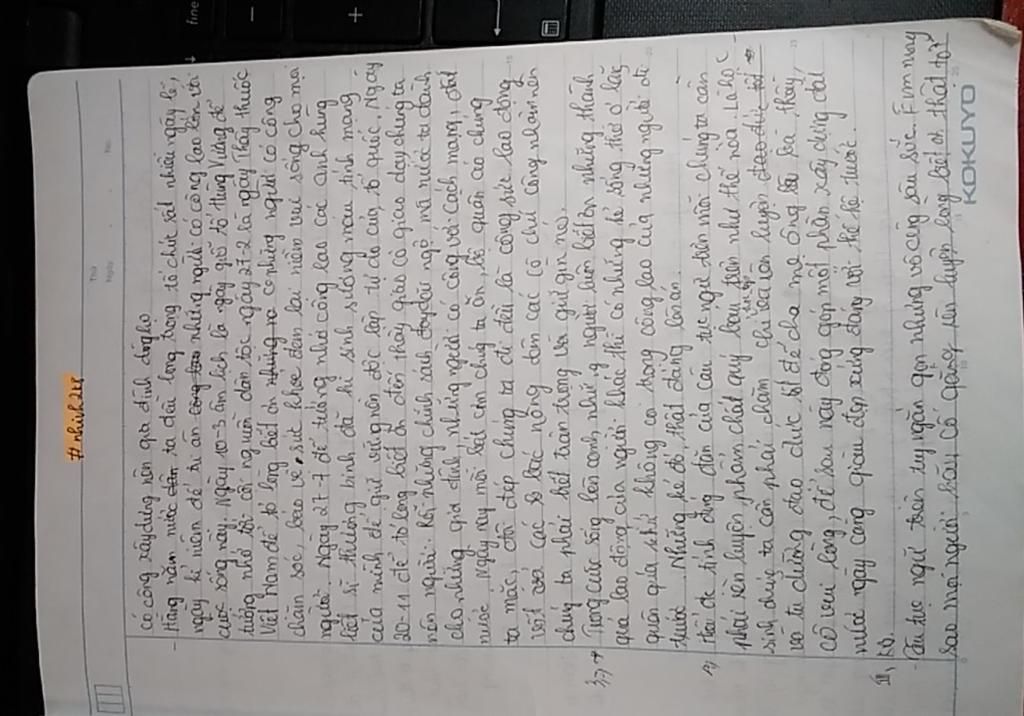 fine
Thứ
Ngày
No.
#nhinh2k4
có công xây dựng nên gia đình dòng họ
- Hàng năm nước ta đều long trọng tổ chức rất nhiều ngày lễ,
ngày kỉ niệm để tri ân những người có công lao lớn với
cuộc sống này. Ngày 10-3 âm lịch là ngày giỗ tổ Hùng Vương để
tưởng nhớ tới cội nguồn dân tộc, ngày 27-2 là ngày Thầy thuốc
Việt Nam để tỏ lòng biết ơn những người có công
chăm sóc, bảo vệ sức khỏe đem lại niềm vui sống cho mọi
người. Ngày 27-7 để tưởng nhớ công lao các anh hùng
liệt sĩ thương binh đã hi sinh xương máu tính mạng
của mình để giữ vững nền độc lập tự do của tổ quốc. Ngày
20-11 để tỏ lòng biết ơn đến thầy giáo cô giáo dạy chúng ta
nên người. Rồi những chính sách đãi ngộ mà nước ta dành
cho những gia đình những người có công với Cách mạng, đất
nước. Ngày nay mỗi bát cơm chúng ta ăn, bộ quần áo chúng
ta mặc, chỗ ở đẹp chúng ta ở đều là công sức lao động
vất vả các bác nông dân các cô chú công nhân nên
chúng ta phải biết trân trọng và giữ gìn nó.
Trong cuộc sống bên cạnh những người luôn biết ơn những thành
quả lao động của người khác thì có những kẻ sống thờ ơ lãng
quên quá khứ không coi trọng công lao của những người đi
trước. Những kẻ đó, thật đáng lên án.
Từ tính đúng đắn của câu tục ngữ trên mỗi chúng ta cần
phải rèn luyện phẩm chất quý báu trên như thế nào. Là học
sinh chúng ta cần phải chăm chỉ rèn luyện
và tu dưỡng đạo đức tốt để cha mẹ ông bà thầy
cô vui lòng, để sau này đóng góp một phần xây dựng đất
nước ngày càng giàu đẹp xứng đáng với thế hệ trước.
III, KB.
- Câu tục ngữ trên tuy ngắn gọn nhưng vô cùng sâu sắc. Em mong
sao mọi người hãy cố gắng rèn luyện lòng biết ơn thật tốt
KOKUYO